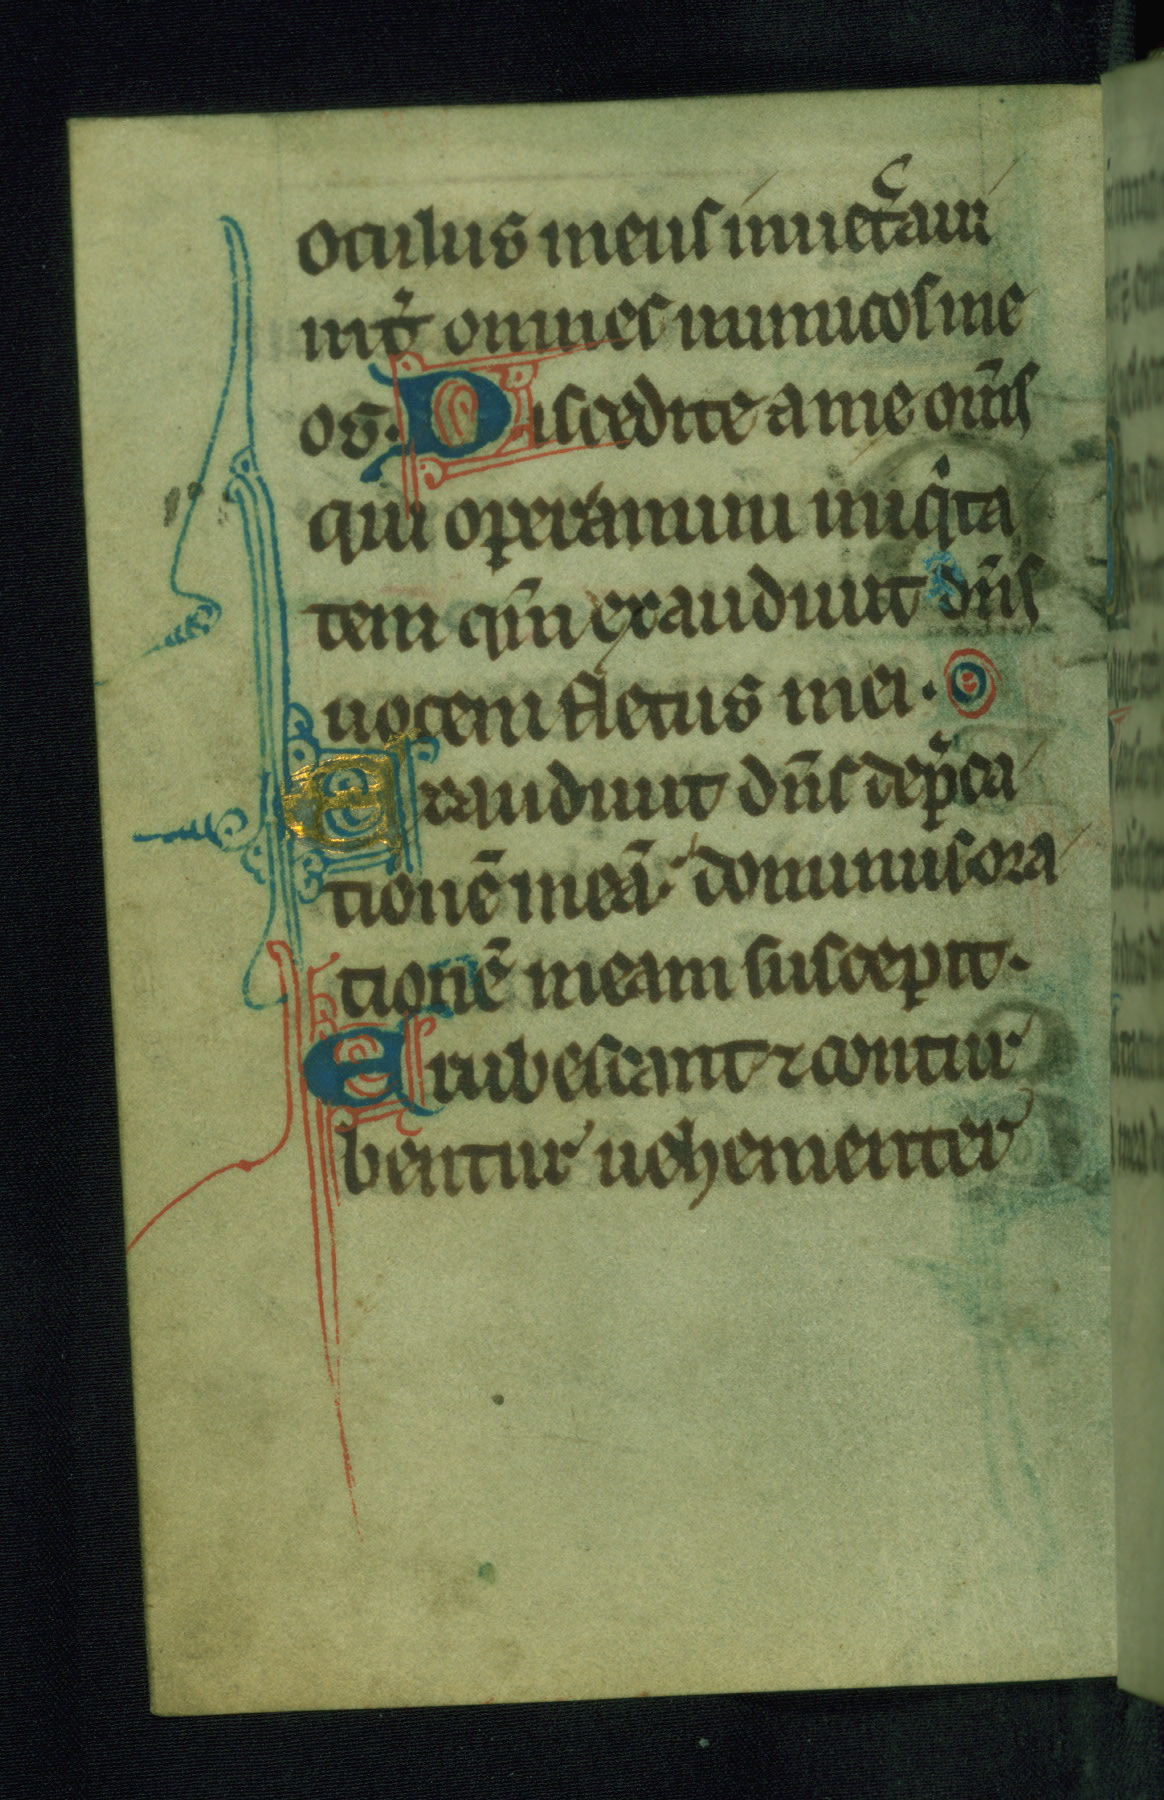 oculus meus inueťaui
int̾ omnes inimicos me
os. Discedite a me om̄s
qui operamini iniqⁱta
tem qm̄ exaudiuit dn̄s
uocem fletus mei.
Exaudiuit dn̄s dep̾ca
tionē meā dominus ora
tionē meam suscepit.
Erubescant ⁊ contur
bentur uehementer